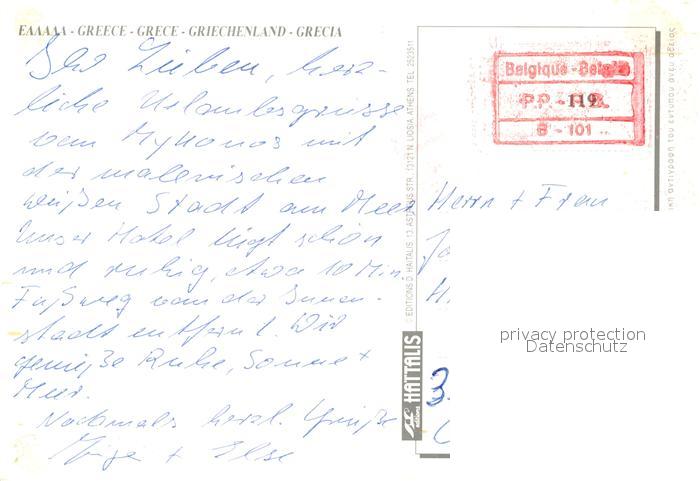 ΕΛΛΑΔΑ - GREECE - GRECE - GRIECHENLAND - GRECIA
Ihr Lieben, herz-
liche Urlaubsgrüsse
von Mykonos mit
der malerischen
weißen Stadt am Meer
Unser Hotel liegt schön
und ruhig, etwa 10 Min.
Fußweg von der Innen-
stadt entfernt. Wir
genieße Ruhe, Sonne +
Meer.
Nochmals herzl. Grüße
+ Else
EDITIONS D. HAITALIS
13121 N. LIOSIA ATHENS TEL. 2523511
editions HAITALIS
Belgique - België
P.P. - 119
B - 101
Herrn + Frau
H.
3.
privacy protection
Datenschutz